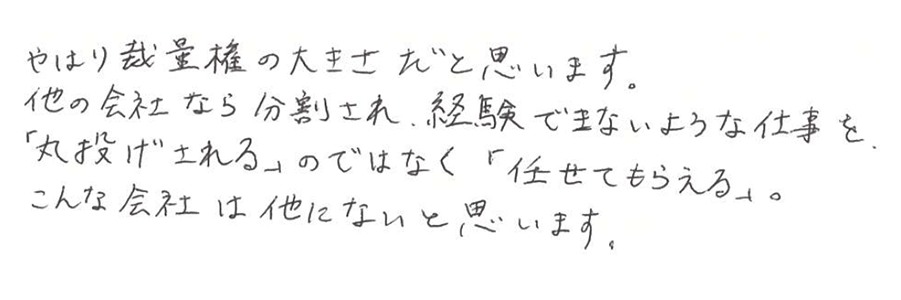 やはり裁量権の大きさだと思います。
他の会社なら分割され、経験できないような仕事を、
「丸投げされる」のではなく「任せてもらえる」。
こんな会社は他にないと思います。